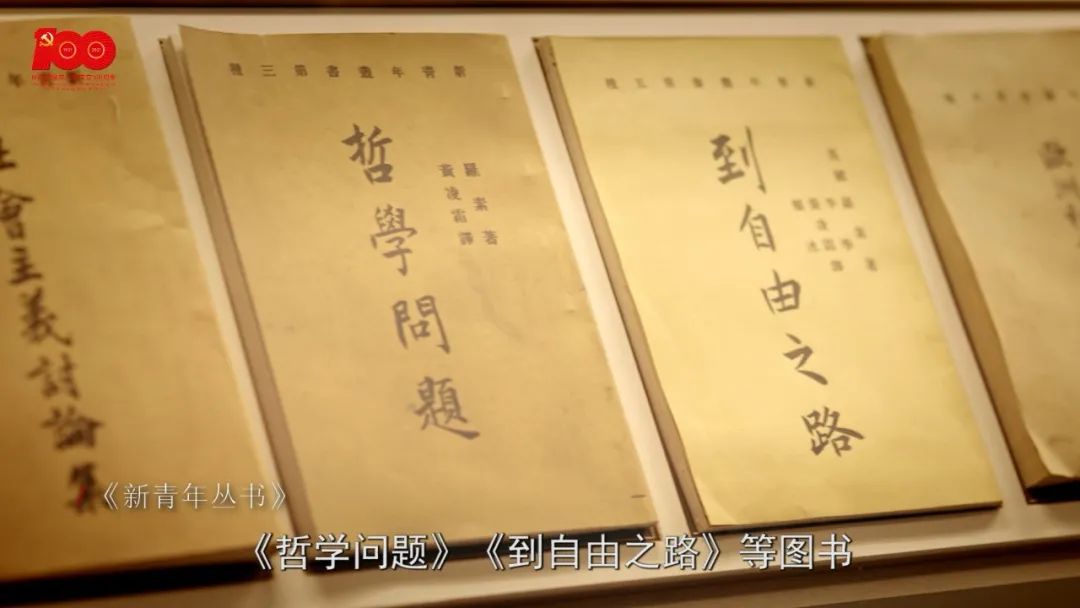 100
社會主義討論集
新青年叢書第三種
哲學問題
羅素著
黃凌霜譯
新青年叢書第五種
到自由之路
《新青年丛书》
《哲学问题》《到自由之路》等图书